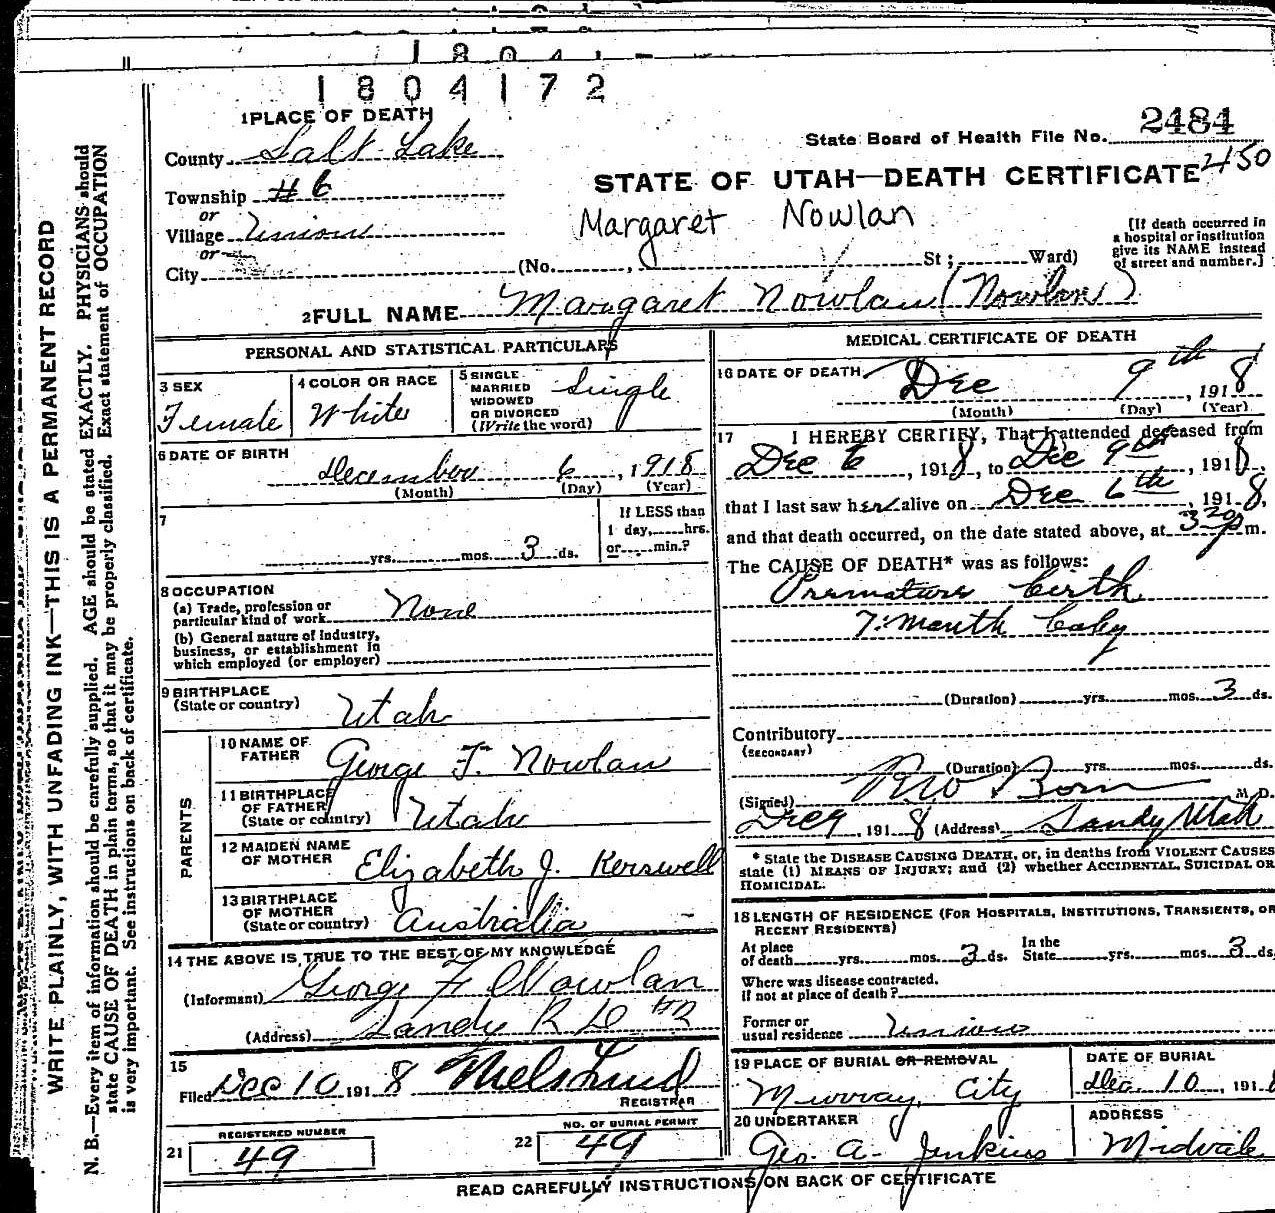 1804172
1 PLACE OF DEATH
County Salt Lake
Township #6
or
Village Union
or
City
State Board of Health File No. 2484
450
STATE OF UTAH—DEATH CERTIFICATE
Margaret Nowlan
[If death occurred in a hospital or institution give its NAME instead of street and number.]
(No. , St ; Ward)
2 FULL NAME Margaret Nowlan (Nowlan)
PERSONAL AND STATISTICAL PARTICULARS
3 SEX
Female
4 COLOR OR RACE
White
5 SINGLE
MARRIED
WIDOWED
OR DIVORCED
(Write the word)
Single
6 DATE OF BIRTH
December 6, 1918
(Month) (Day) (Year)
7
yrs. mos. 3 ds.
If LESS than
1 day, hrs.
or min.?
8 OCCUPATION
(a) Trade, profession or
particular kind of work None
(b) General nature of Industry,
business, or establishment in
which employed (or employer)
9 BIRTHPLACE
(State or country)
Utah
PARENTS
10 NAME OF
FATHER
George F. Nowlan
11 BIRTHPLACE
OF FATHER
(State or country)
Utah
12 MAIDEN NAME
OF MOTHER
Elizabeth J. Kerswell
13 BIRTHPLACE
OF MOTHER
(State or country)
Australia
14 THE ABOVE IS TRUE TO THE BEST OF MY KNOWLEDGE
(Informant) George F. Nowlan
(Address) Sandy R D #2
15
Filed Dec 10 1918
REGISTRAR
REGISTERED NUMBER
21 49
NO. OF BURIAL PERMIT
22 49
MEDICAL CERTIFICATE OF DEATH
16 DATE OF DEATH
Dec 9th, 1918
(Month) (Day) (Year)
17 I HEREBY CERTIFY, That I attended deceased from
Dec 6, 1918, to Dec 9th, 1918,
that I last saw her alive on Dec 6th, 1918,
and that death occurred, on the date stated above, at 3 20 p m.
The CAUSE OF DEATH* was as follows:
Premature birth
7 month baby
(Duration) yrs. mos. 3 ds.
Contributory
(SECONDARY)
(Duration) yrs. mos. ds.
(Signed) M. D.
Dec 9, 1918 (Address) Sandy Utah
* State the DISEASE CAUSING DEATH, or, in deaths from VIOLENT CAUSES
state (1) MEANS OF INJURY; and (2) whether ACCIDENTAL, SUICIDAL OR
HOMICIDAL.
18 LENGTH OF RESIDENCE (FOR HOSPITALS, INSTITUTIONS, TRANSIENTS, OR
RECENT RESIDENTS)
At place
of death yrs. mos. 3 ds.
In the
State yrs. mos. 3 ds.
Where was disease contracted.
if not at place of death?
Former or
usual residence Union
19 PLACE OF BURIAL OR REMOVAL
Murray City
DATE OF BURIAL
Dec. 10, 1918
20 UNDERTAKER
Geo. A. Jenkins
ADDRESS
Midvale
READ CAREFULLY INSTRUCTIONS ON BACK OF CERTIFICATE
WRITE PLAINLY, WITH UNFADING INK—THIS IS A PERMANENT RECORD
N. B.—Every item of information should be carefully supplied. AGE should be stated EXACTLY. PHYSICIANS should
state CAUSE OF DEATH in plain terms, so that it may be properly classified. Exact statement of OCCUPATION
is very important. See instructions on back of certificate.